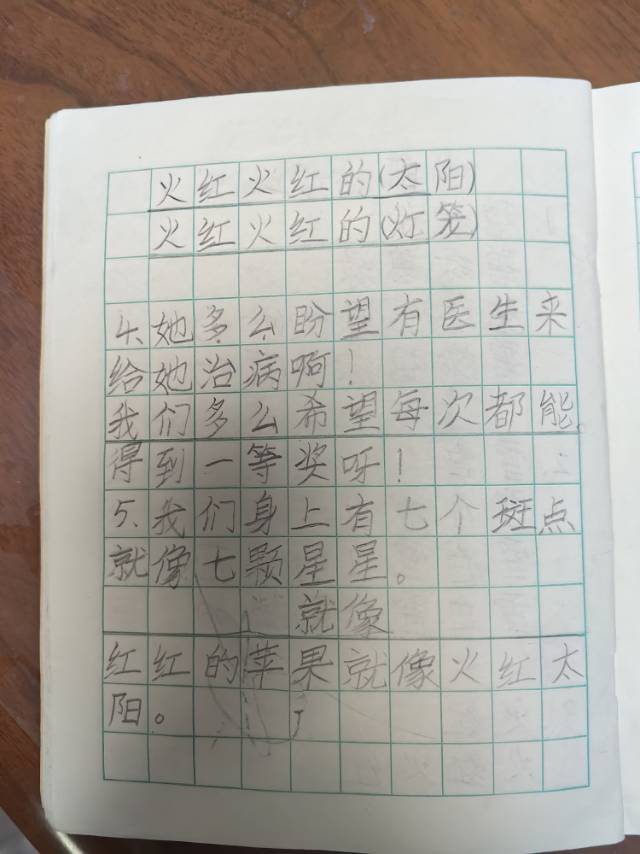 火红火红的(太阳)
火红火红的(灯笼)
4、她多么盼望有医生来
给她治病啊！
我们多么希望每次都能
得到一等奖呀！
5、我们身上有七个斑点
就像七颗星星。
就像
红红的苹果就像火红太
阳。